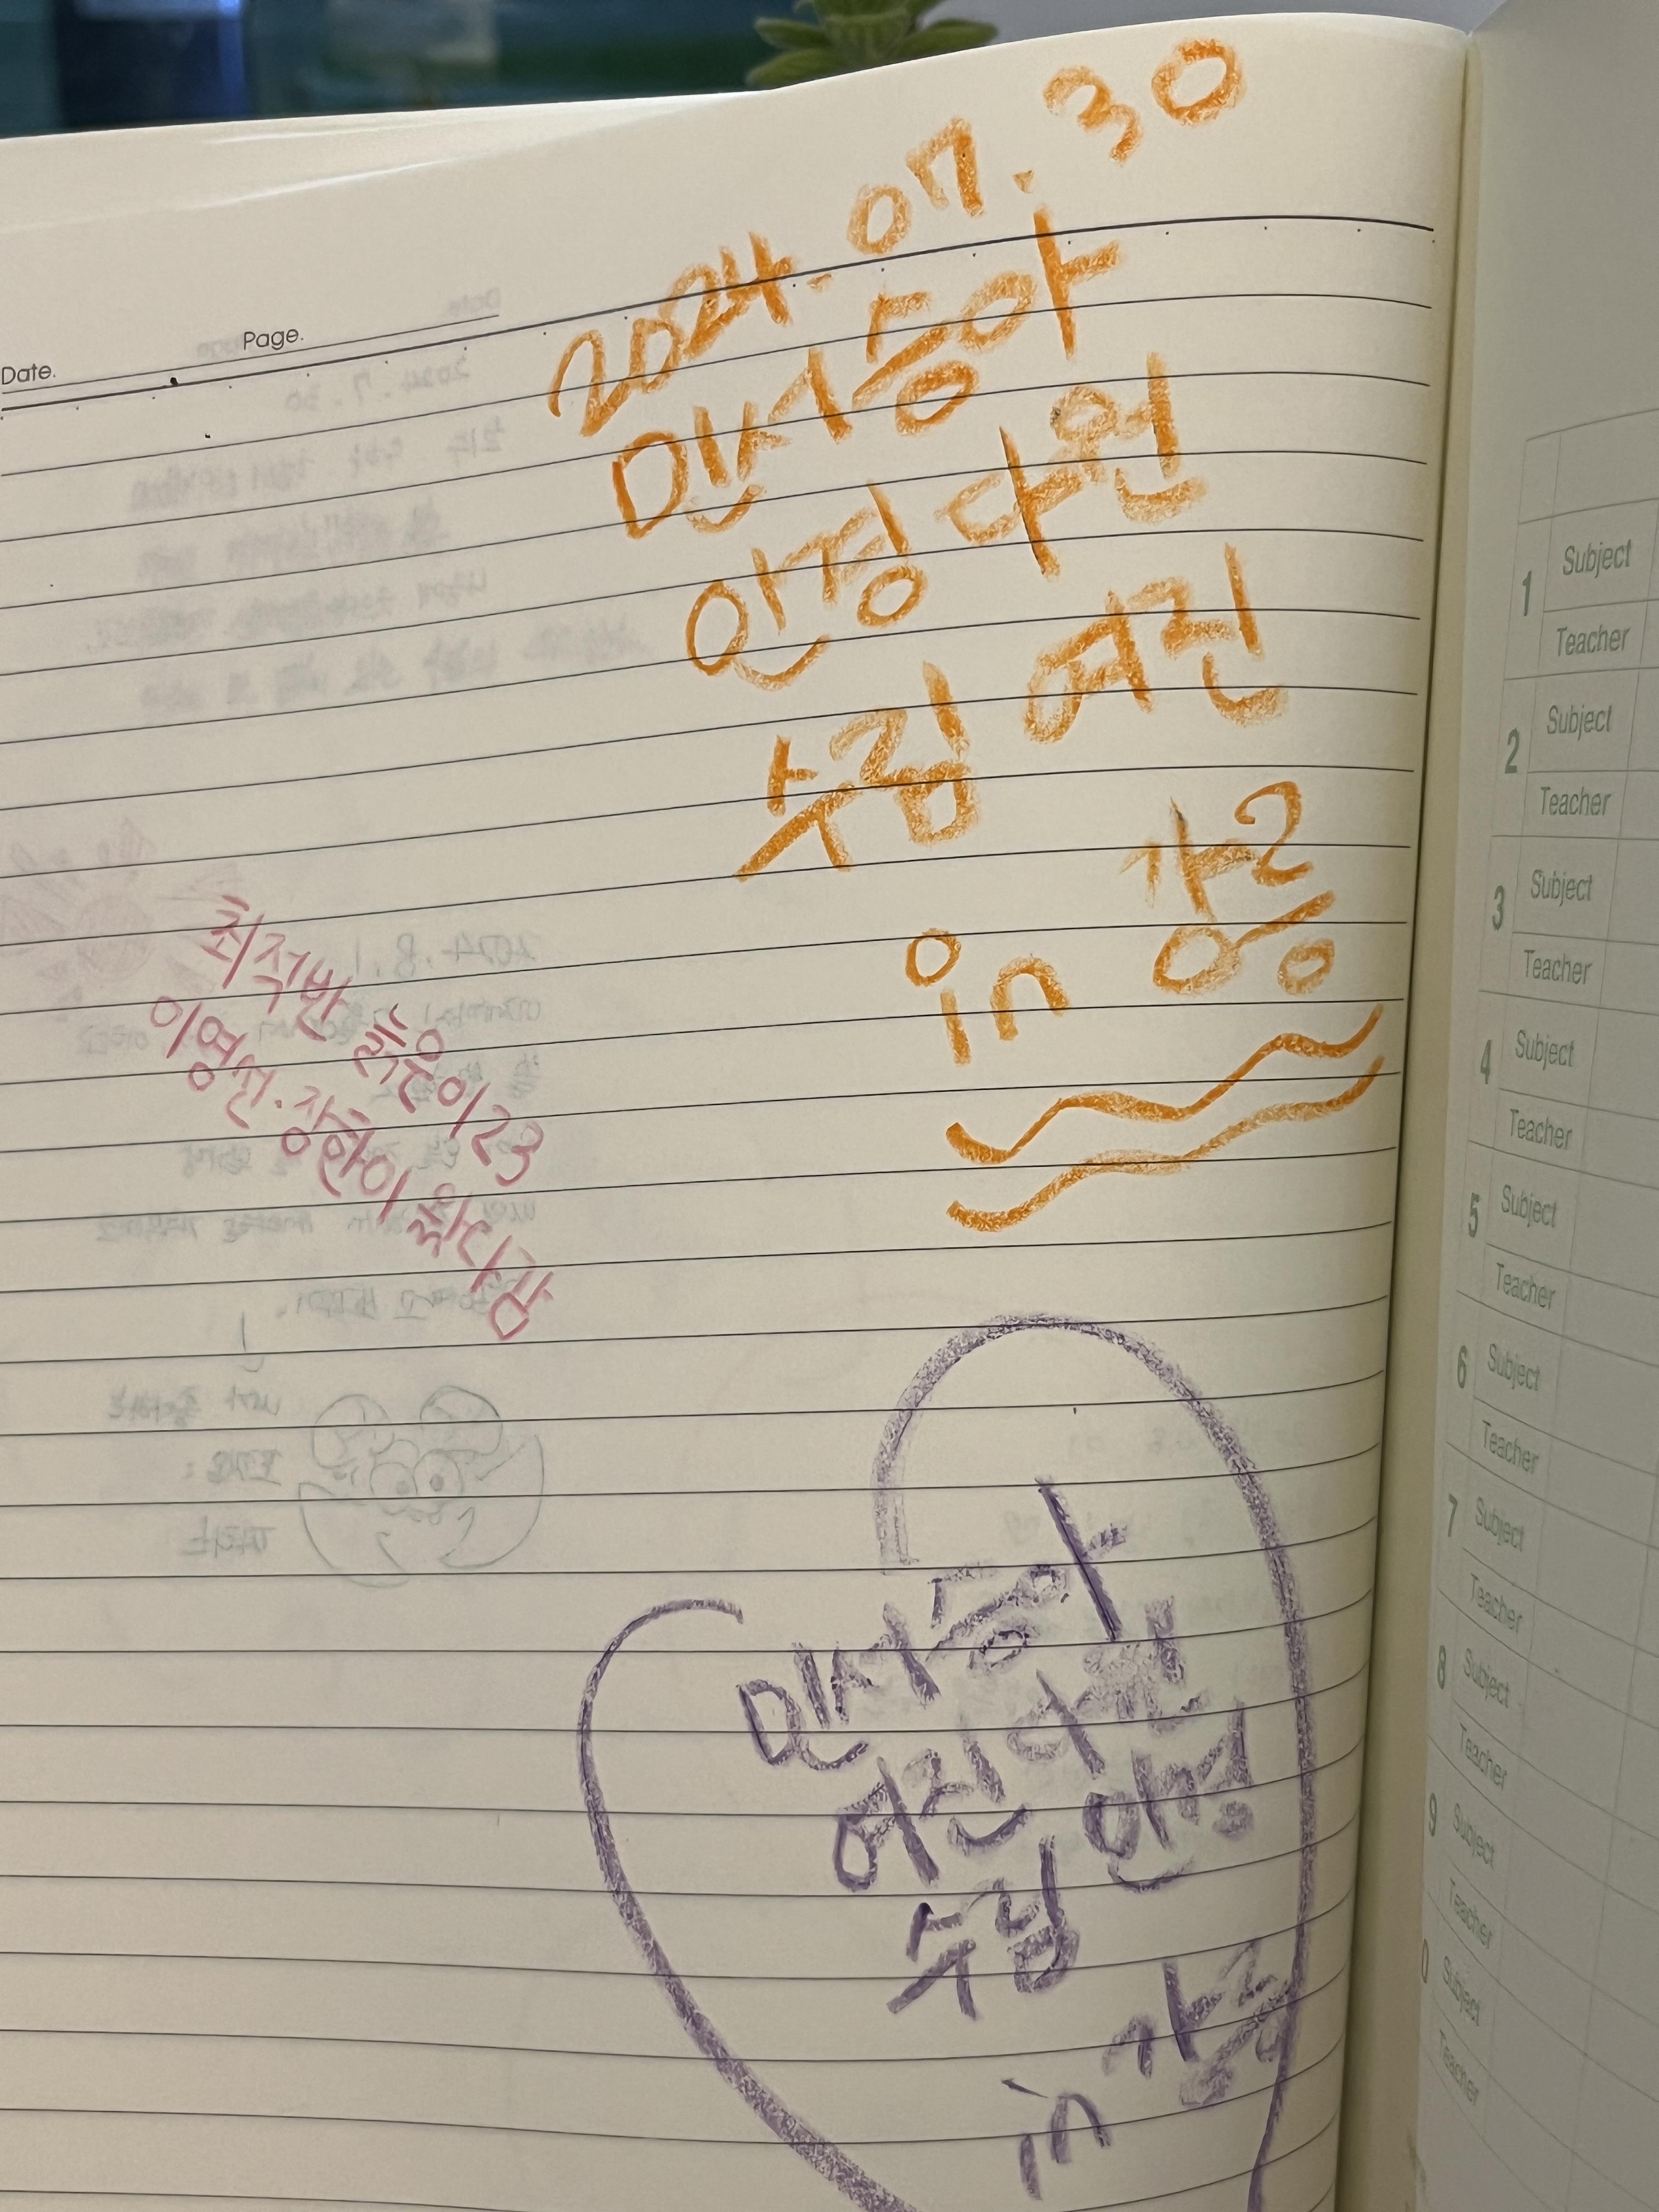 Date.
Page.
2024. 07. 30
민승아
안정 다원
수림 여진
in 강릉
최적반 늙은이23
이영선·장현이 왔다감
민승아
여진 다원
수림 안정
in 강릉
1 Subject
Teacher
2 Subject
Teacher
3 Subject
Teacher
4 Subject
Teacher
5 Subject
Teacher
6 Subject
Teacher
7 Subject
Teacher
8 Subject
Teacher
9 Subject
Teacher
0 Subject
Teacher